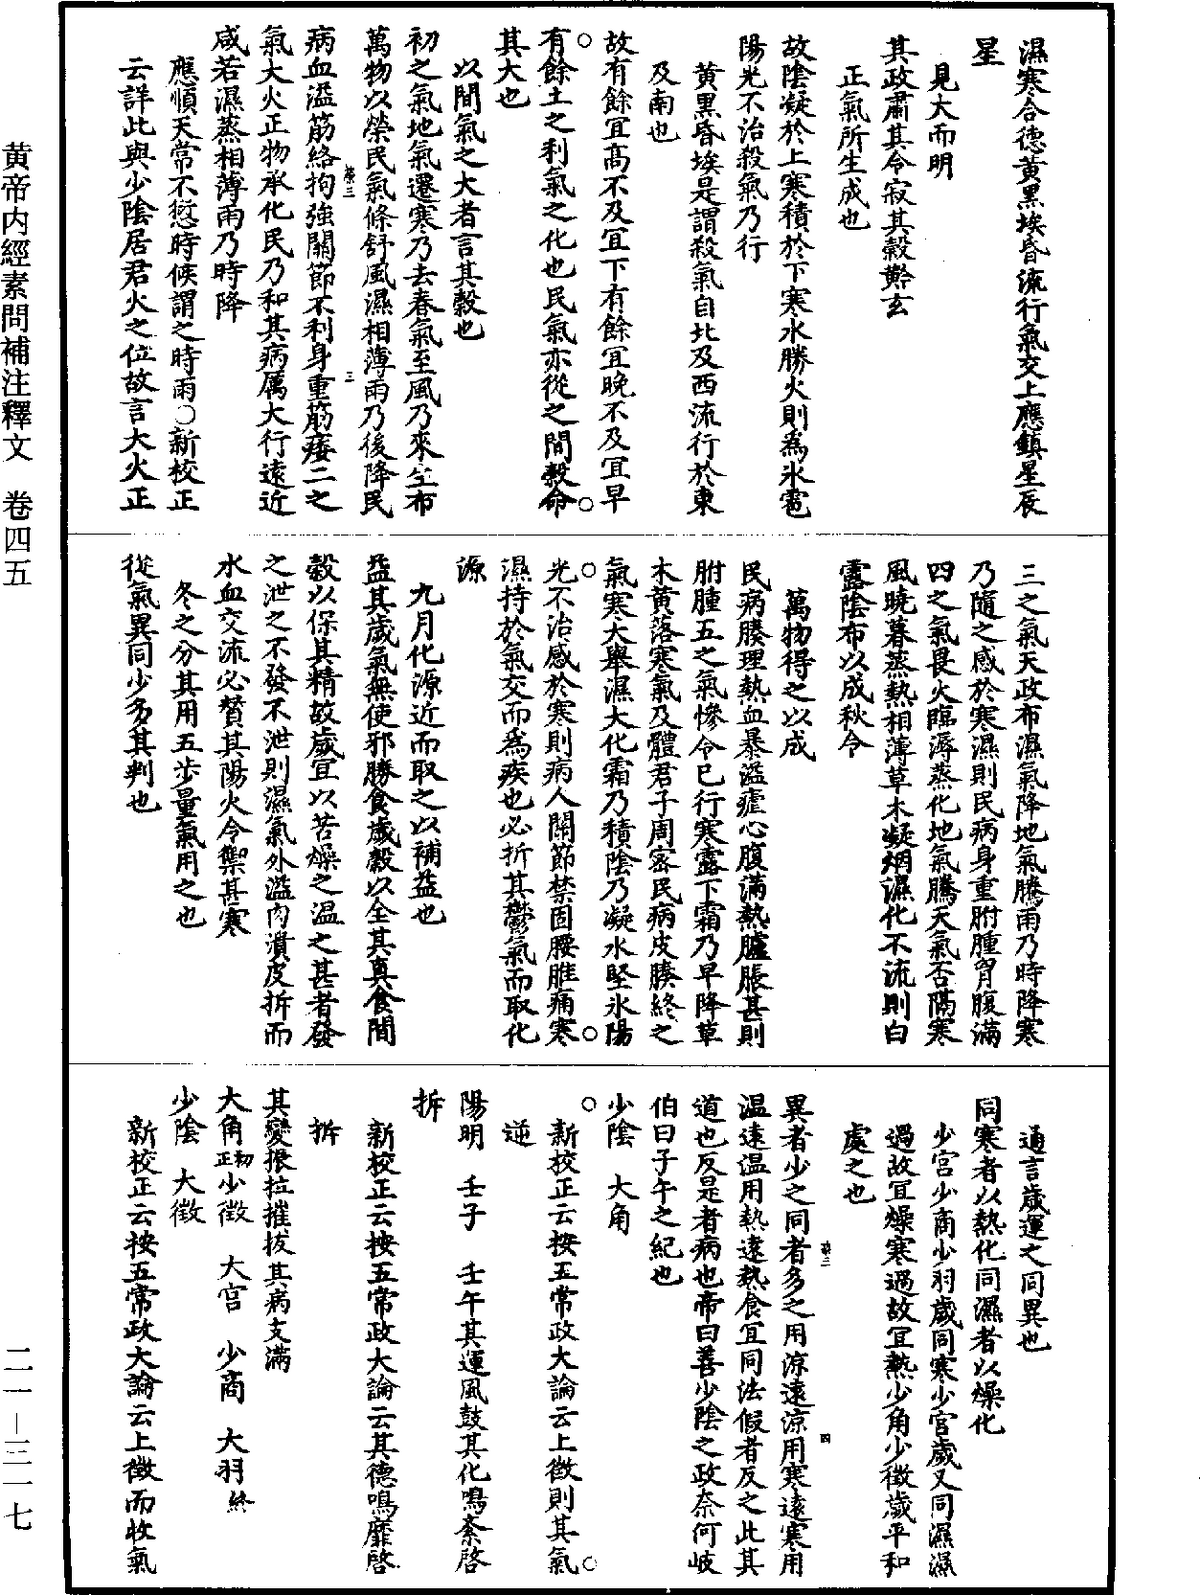 濕寒合德黃黑埃昏流行氣交上應鎮星辰
星
見大而明
其政肅其令寂其穀黅玄
正氣所生成也
故陰凝於上寒積於下寒水勝火則為氷雹
陽光不治殺氣乃行
黃黑昏埃是謂殺氣自北及西流行於東
及南也
故有餘宜高不及宜下有餘宜晚不及宜早
○有餘土之利氣之化也民氣亦從之間穀命○
其大也
以間氣之大者言其穀也
初之氣地氣遷寒乃去春氣至風乃來生布
萬物以榮民氣條舒風濕相薄雨乃後降民
病血溢筋絡拘強關節不利身重筋痿二之
氣大火正物承化民乃和其病厲大行遠近
咸若濕蒸相薄雨乃時降
應順天常不愆時候謂之時雨○新校正
云詳此與少陰居君火之位故言大火正
三之氣天政布濕氣降地氣騰雨乃時降寒
乃隨之感於寒濕則民病身重胕腫胷腹滿
四之氣畏火臨溽蒸化地氣騰天氣否隔寒
風曉暮蒸熱相薄草木凝烟濕化不流則白
露陰布以成秋令
萬物得之以成
民病腠理熱血暴溢瘧心腹滿熱臚脹甚則
胕腫五之氣慘令已行寒露下霜乃早降草
木黃落寒氣及體君子周密民病皮腠終之
○氣寒大舉濕大化霜乃積陰乃凝水堅氷陽○
光不治感於寒則病人關節禁固腰脽痛寒
濕持於氣交而為疾也必折其鬱氣而取化
源
九月化源近而取之以補益也
益其歲氣無使邪勝食歲穀以全其真食間
穀以保其精故歲宜以苦燥之温之甚者發
之泄之不發不泄則濕氣外溢肉潰皮拆而
水血交流必賛其陽火令禦甚寒
冬之分其用五步量氣用之也
從氣異同少多其判也
通言歲運之同異也
同寒者以熱化同濕者以燥化
少宮少商少羽歲同寒少宮歲又同濕濕
過故宜燥寒過故宜熱少角少徵歲平和
處之也
異者少之同者多之用涼遠涼用寒遠寒用
温遠温用熱遠熱食宜同法假者反之此其
道也反是者病也帝曰善少陰之政奈何岐
伯曰子午之紀也
少陰　大角
○新校正云按五常政大論云上徵則其氣○
逆
陽明　壬子　壬午其運風鼓其化鳴紊啓
拆
新校正云按五常政大論云其德鳴靡啓
拆
其變振拉摧拔其病支滿
大角初正少徵　大宮　少商　大羽終
少陰　大徵
新校正云按五常政大論云上徵而收氣
黃帝內經素問補注釋文　卷四五
二一—三一七